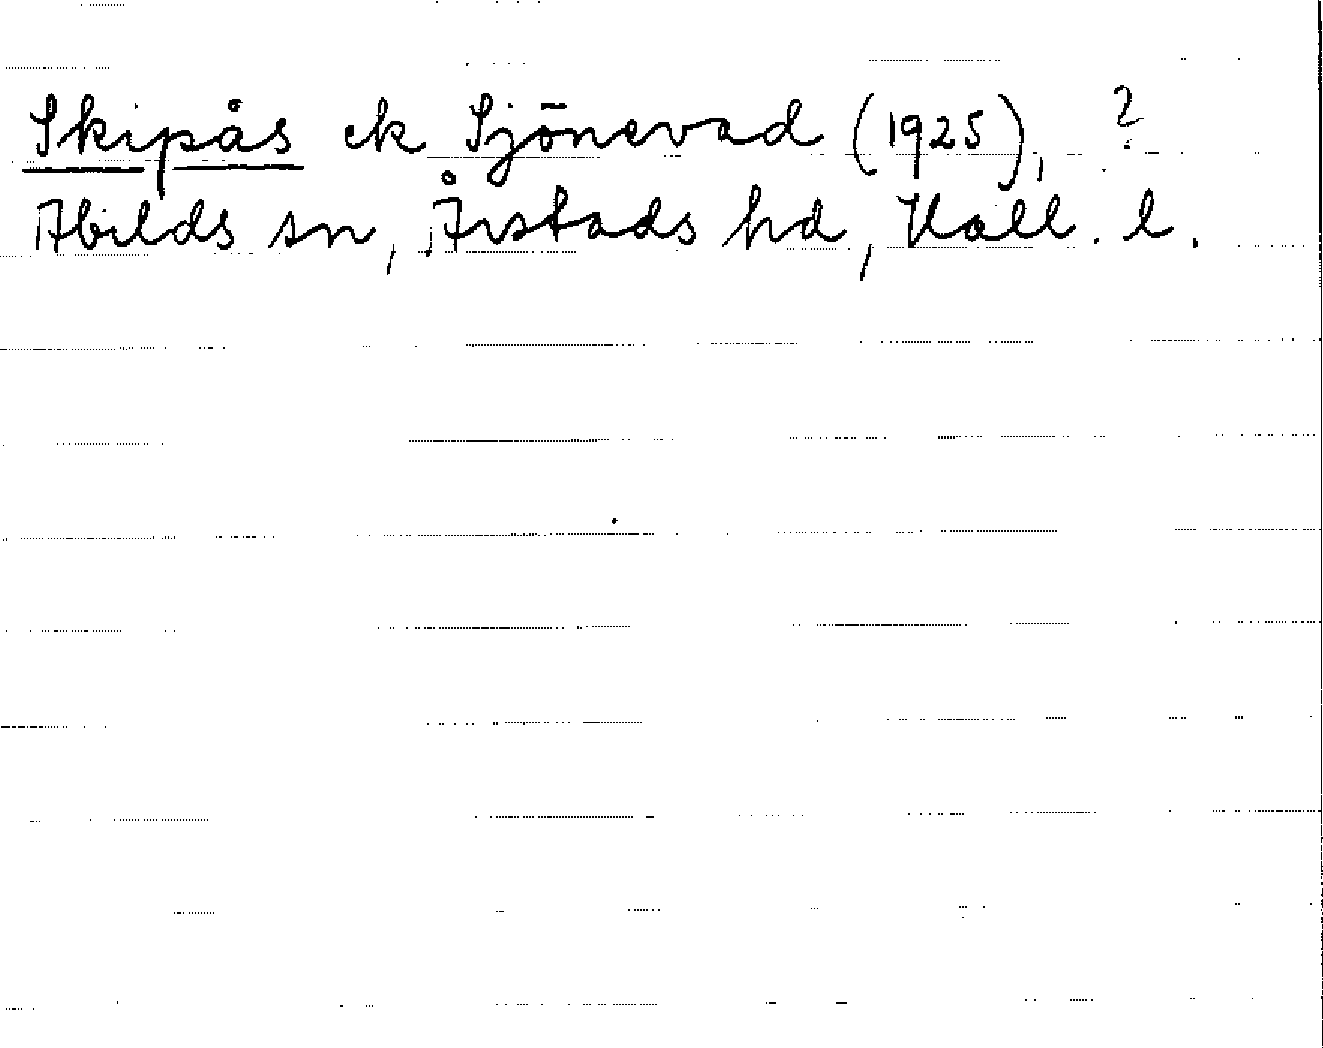 Skipås ek Sjönevad (1925), ?
Abilds sn, Årstads hd, Hall. l.